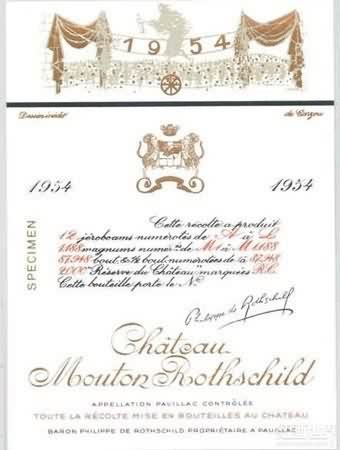 1954
Dessin inédit
de Carzou
1954
1954
Cette récolte a produit
12 jéroboams numérotés de A à L
1188 magnums numér.és de M1 à M1188
87.948 bout. & ½ bout. numérotées de 1 à 87.948
2000 "Réserve du Château" marquées R.C.
Cette bouteille porte le No
SPECIMEN
Philippe de Rothschild
Château
Mouton Rothschild
APPELLATION PAUILLAC CONTRÔLÉE
TOUTE LA RÉCOLTE MISE EN BOUTEILLES AU CHÂTEAU
BARON PHILIPPE DE ROTHSCHILD PROPRIÉTAIRE A PAUILLAC